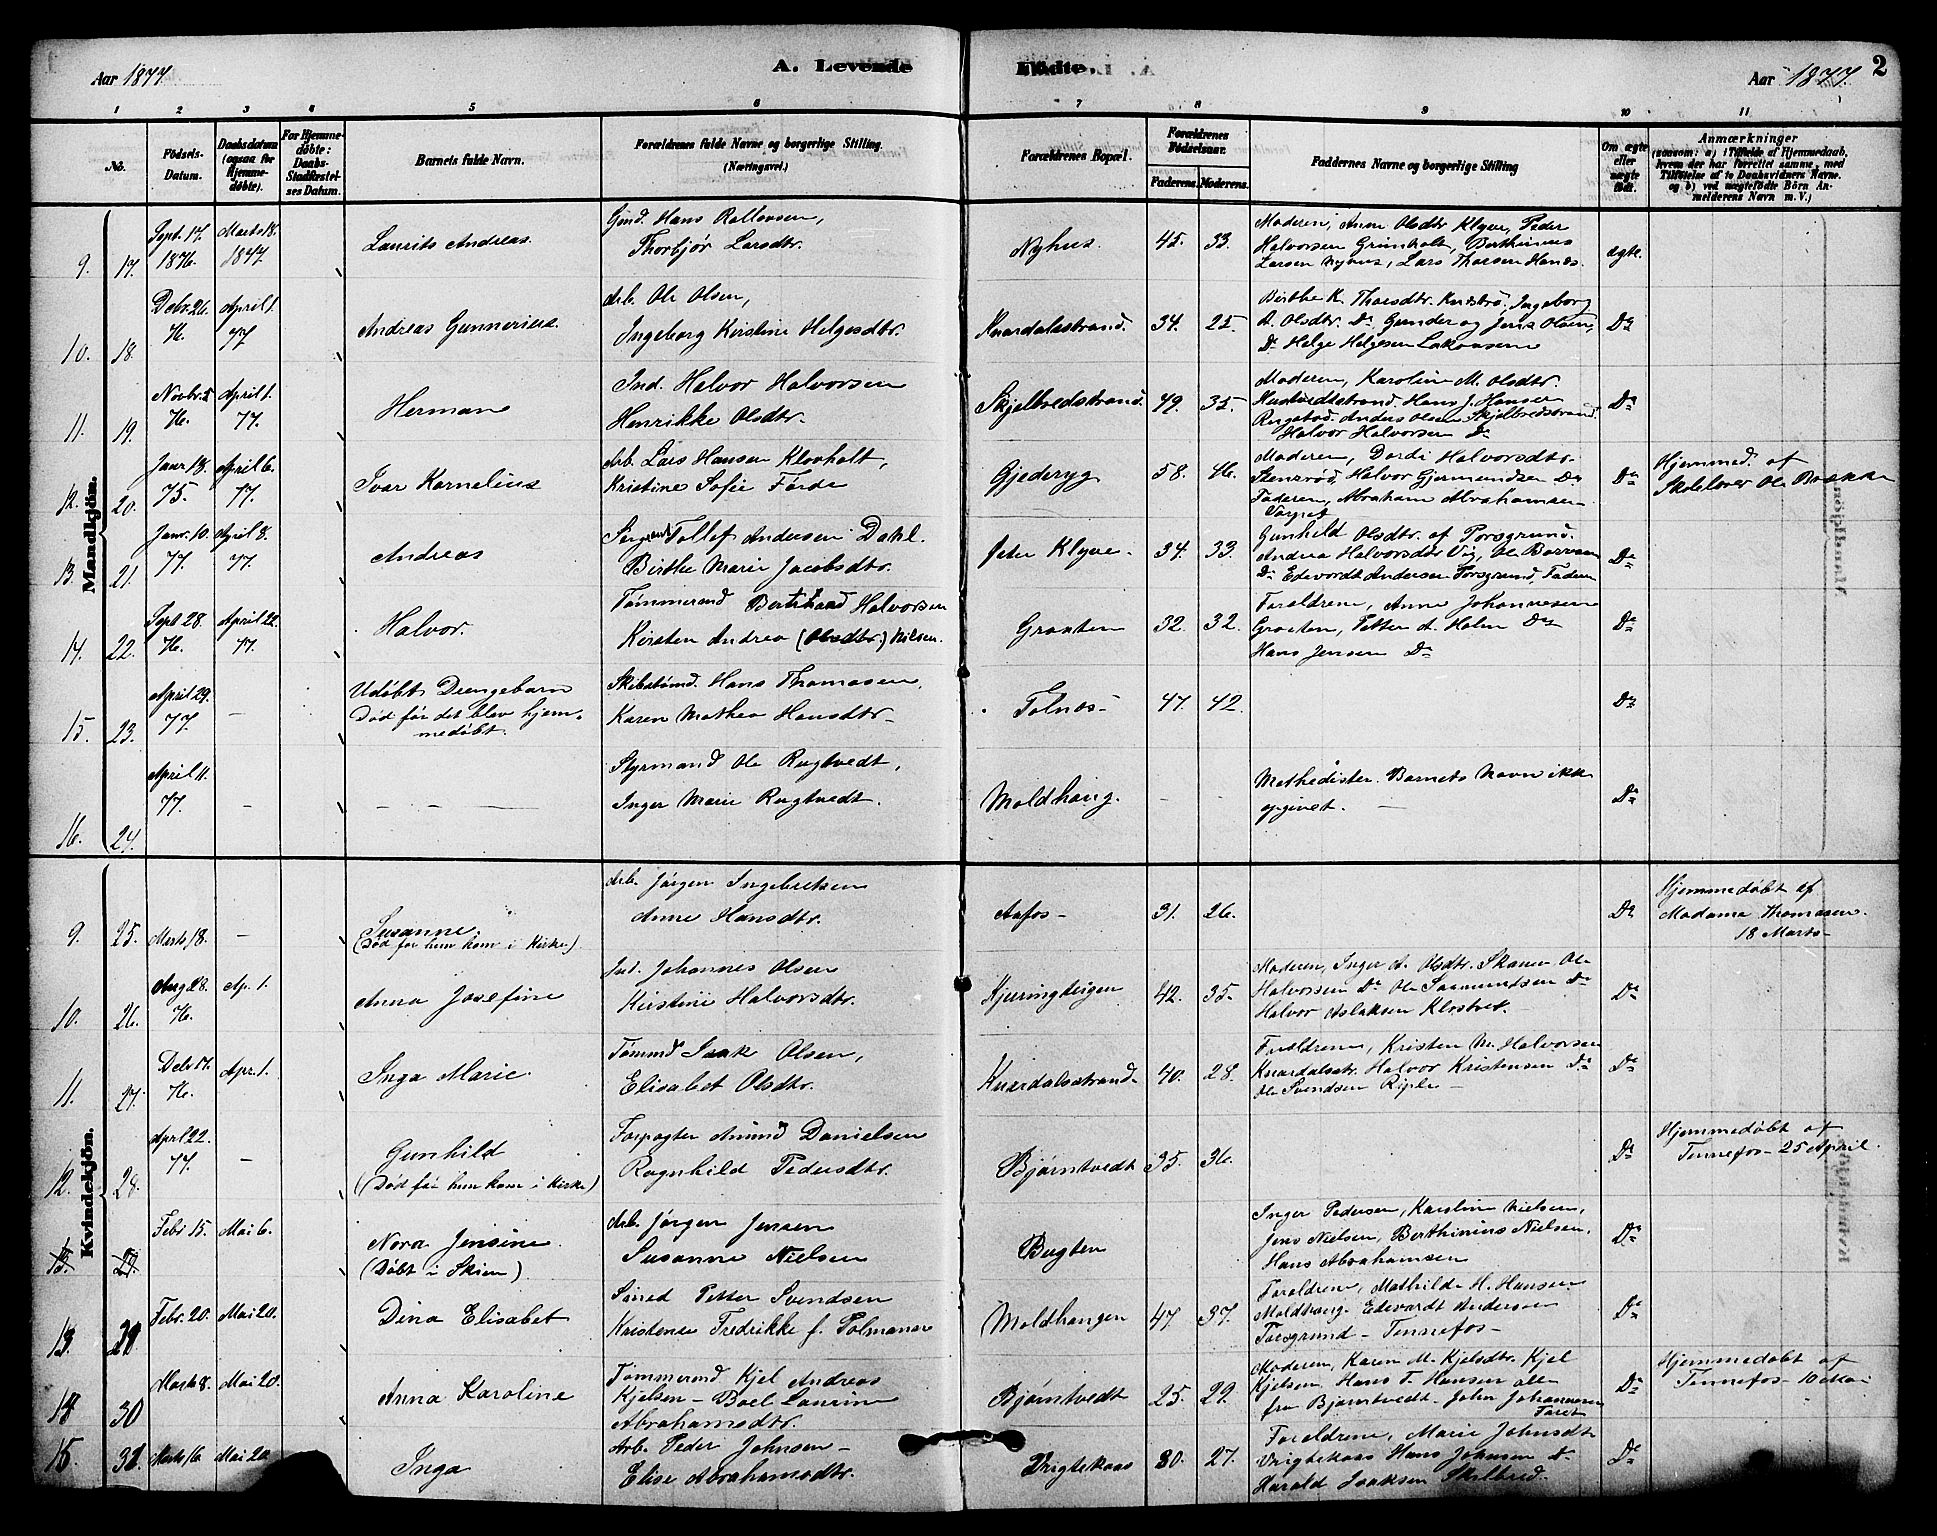 Aar 1877.
A. Levende
Födte.
Aar 1877.
2
1 2 3 4 5 6 7 8 9 10 11
No.
Födsels-Datum.
Daabsdatum (ogsaa for Hjemmedöbte).
For Hjemmedöbte: Daabs-Stadfæstelses Datum.
Barnets fulde Navn.
Forældrenes fulde Navne og borgerlige Stilling.
(Næringsvei.)
Forældrenes Bopæl.
Forældrenes Födselsaar.
Faderens. Moderens.
Faddernes Navne og borgerlige Stilling
Om ægte eller uægte födt.
Anmærkninger
(saasom: a) i Tilfælde af Hjemmedaab, hvem der har forrettet samme, med Tilföielse af to Daabsvidners Navne. og b) ved uægtefödte Börn Anmelderens Navn m. V.)
Mandkjön.
9. 17. Sept. 17. 1876. Marts 18. 1877. Laurits Andreas. Hans Rollevsen, Thorbjør Larsdtr. Nyhus. 45. 33. Moderen, Anne Olsdtr Klyve, Peder
Halvorsen Grimholt, Berthinius
Larsen Nyhus, Lars Thorsen ægte.
10. 18. Debr. 26. 76. April 1. 77. Andreas Gunnerius. Arb. Ole Olsen, Ingeborg Kirstine Helgesdtr. Knardalsstrand. 34. 25. Birthe K. Thorsdtr. Ingeborg
A. Olsdtr. Do Gunder og Jens Olsen,
Do Helge Helgesen Do
11. 19. Novbr. 5 76. April 1. 77. Herman Ind. Halvor Halvorsen Henrikke Olsdtr. Skjelbredstrand. 49. 35. Moderen, Karoline M. Olsdtr.
Hans J. Hansen
Anders Olsen Skjelbredstrand
Halvor Halvorsen Do Do
12. 20. Janr 18. 75. April 6. 77. Ivar Kornelius Arb. Lars Hansen Klovholt, Kristine Sofie Førde Gjederyg 58. 46. Moderen, Dordi Halvorsdtr.
Stensrød, Halvor Gjermundsen Do
Faderen, Abraham Abrahamsen
Do Hjemmed. af
Skolelærer Ole Brække
13. 21. Janr. 10. 77. April 8. 77. Andreas Tollef Andersen Dahl. Birthe Marie Jacobsdtr. Peter Klyve. 34. 33. Gunhild Olsdtr. af Porsgrund.
Andrea Halvorsdtr Vig, Ole
Do Edevardt Andersen Porsgrund, Faderen Do
14. 22. Sept 28. 76. April 22. 77. Halvor. Tømmermd Berthand Halvorsen Kirsten Andrea (Olsdtr.) Nilsen. Graaten 32. 32. Forældrene, Anne Johannesen
Graaten, Petter A. Holm Do
Hans Jensen Do Do
15. 23. April 29. 77. – Udøbt Drengebarn
Død før det blev hjem-
medøbt. Skibstømd. Hans Thomasen, Karen Mathea Hansdtr. Tolnæs 47. 42. Do
16. 24. April 11. 77. – – – – Styrmand Ole Rugtvedt, Inger Marie Rugtvedt. Moldhaug. – – Methodister. Barnets Navn ikke
opgivet. – Do
Kvindekjön.
9. 25. Marts 18. – Susanne.
(Død før hun kom i Kirke.) Arb. Jørgen Ingebretsen Anne Hansdtr. Aafos 31. 26. Do Hjemmedøbt af
Madame Thomasen.
18 Marts
10. 26. Aug 28. 76. Ap. 1. Anna Josefine Ind. Johannes Olsen Kirstine Halvorsdtr. Kjerringteigen 42. 35. Moderen, Inger A. Olsdtr. Skaren Ole
Halvorsen Do Ole Sammundsen Do
Halvor Aslaksen Klostret. Do
11. 27. Debr 17. 76. Apr. 1. Inga Marie. Tømmd Isak Olsen, Elisabet Olsdtr. Knardalsstrand. 40. 28. Forældrene, Kristen M. Halvorsen
Knardalsstr. Halvor Kristensen Do
Ole Svendsen Do
12. 28. April 22. 77. – Gunhild
(Død før hun kom i Kirke) Forpagter Amund Danielsen Ragnhild Pedersdtr. Bjørntvedt 35. 36. Do Hjemmedøbt af
Tennefos 25 April.
13. 29. Febr 15. Mai 6. Nora Jensine.
(Døbt i Skien) Arb. Jørgen Jensen Susanne Nielsen Bugten Inger Pedersen, Karoline Nielsen,
Jens Nielsen, Berthinius Nielsen,
Hans Abrahamsen Do
13. 29 Febr. 20. Mai 20. Dina Elisabet Smed Petter Svendsen Kristense Fredrikke f. Polmanar Moldhaugen 47 37. Forældrene, Mathilde H. Hansen
Moldhaug. Edevardt Andersen
Porsgrund – Tennefos – Do
14 30 Marts 8. Mai 20. Anna Karoline Tømmermd Kjel Andreas
Kjelsen – Boel Laurine
Abrahamsdtr. Bjørntvedt 25. 29. Moderen, Karen M. Kjelsdtr. Kjel
Kjelsen, Hans T. Hansen alle
fra Bjørntvedt. John Johannesen
Faret Do Hjemmedøbt af
Tennefos – 10 Mai
15 31 Marts 16 Mai 20 Inga Arb. Peder Johnsen – Elise Abrahamsdtr. Vrigtekaas 30. 27. Forældrene, Marie Johnsdt
Vrigtekaas Hans Johnsen Do
Harald Isaksen Skilbred. Do